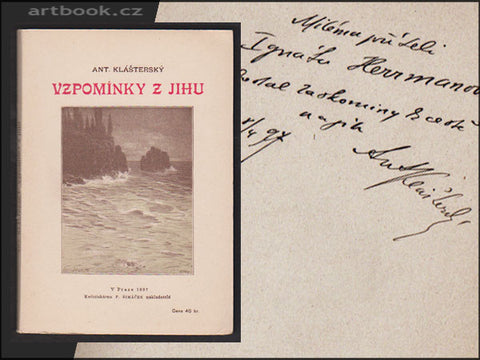 artbook.cz
ANT. KLÁŠTERSKÝ
VZPOMÍNKY Z JIHU
V Praze 1897
Knihtiskárna F. ŠIMÁČEK nakladatel
Cena 40 kr.
Milému příteli
Ignátu Herrmanovi
Ant. Klášterský